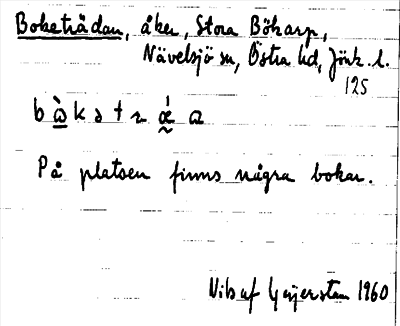 Boketrådan, åker, Stora Bökarp,
Nävelsjö sn, Östra hd, Jönk. l.
125
På platsen finns några bokar.
Nils af Geijerstam 1960